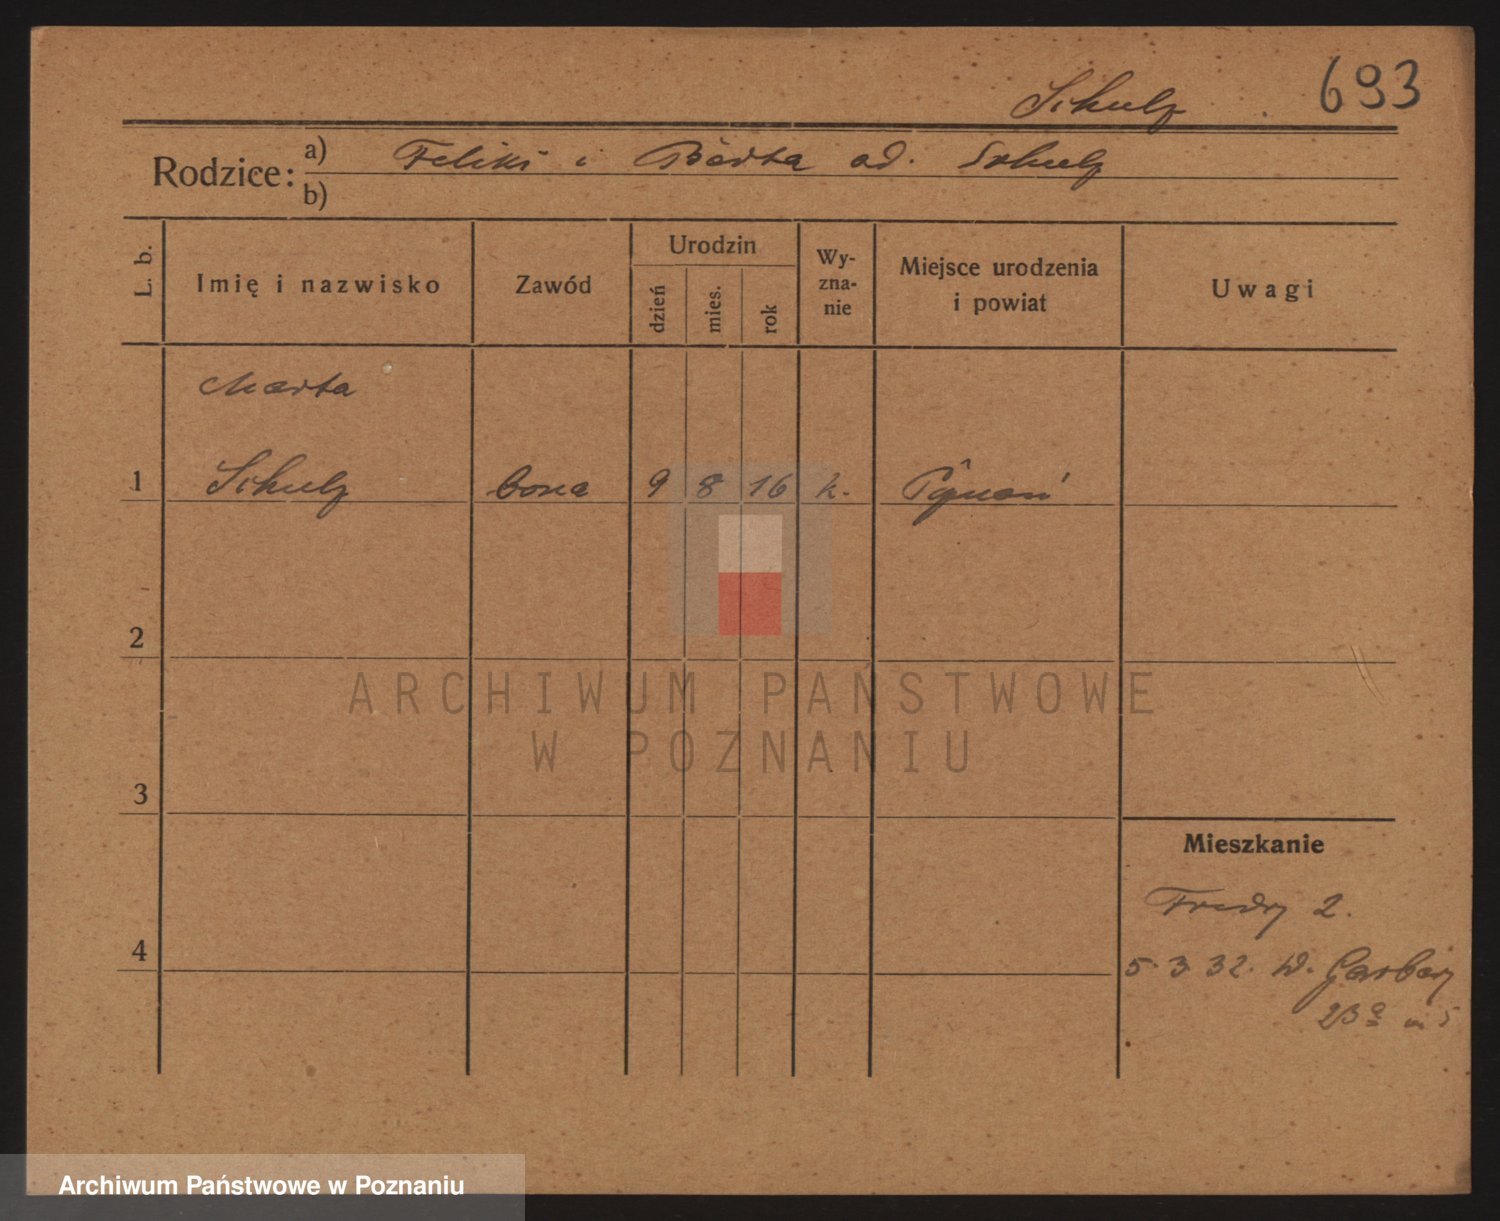 Schulz 693
Rodzice: a) Feliks i Berta od. Schulz
b)
L. b. Imię i nazwisko Zawód Urodzin dzień mies. rok Wy-zna-nie Miejsce urodzenia i powiat Uwagi
Marta
1 Schulz bona 9 8 16 k. Poznań
2
ARCHIWUM PAŃSTWOWE
W POZNANIU
3
Mieszkanie
Fredry 2.
4
5. 3. 32. W. Garbary
23a m 5
Archiwum Państwowe w Poznaniu